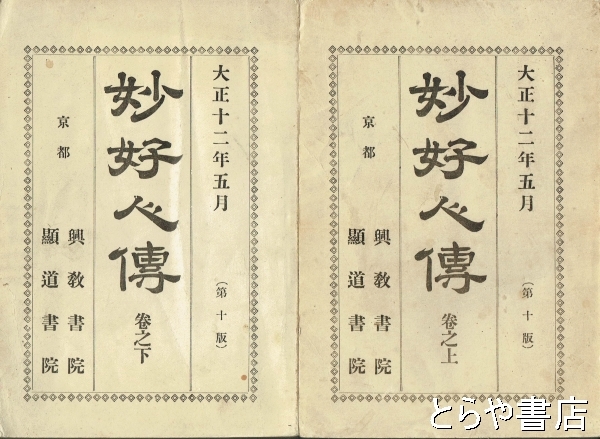 大正十二年五月
(第十版)
妙好人傳
卷之上
京都
興教書院
顯道書院
大正十二年五月
(第十版)
妙好人傳
卷之下
京都
興教書院
顯道書院
とらや書店